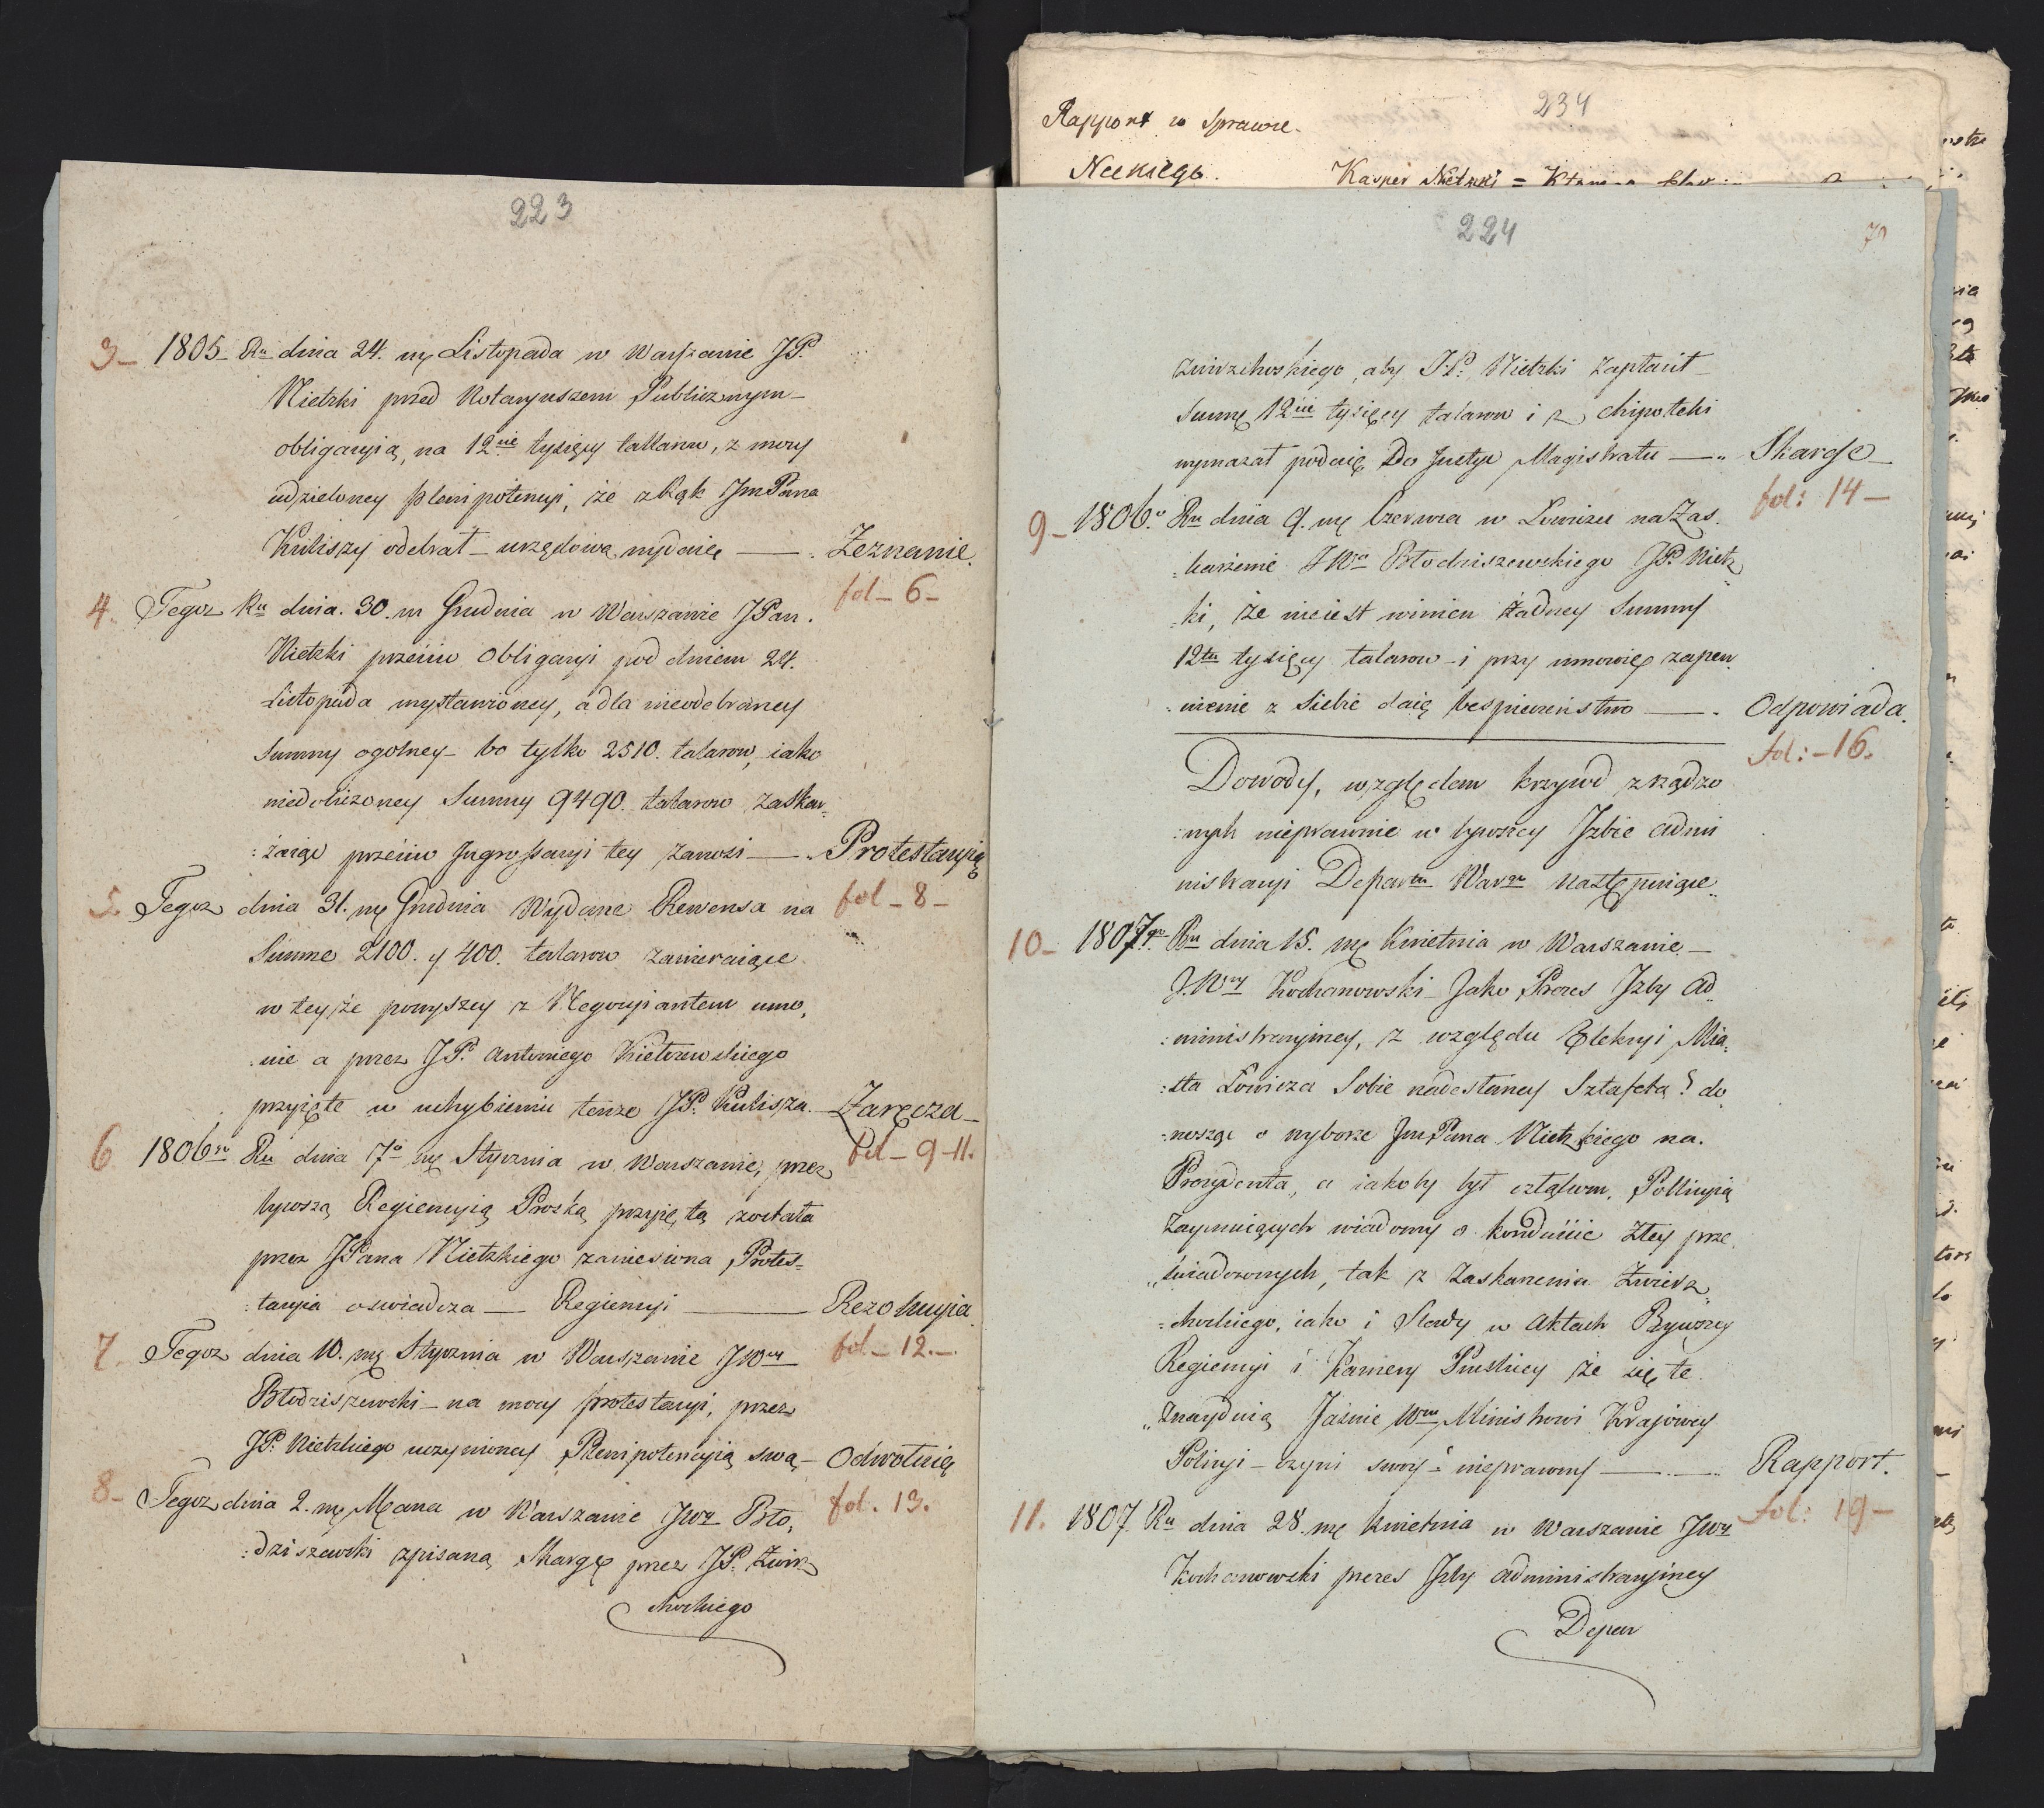 223
3 – 1805 – Ru dnia 24. mę Listopada w Warszawie JP.
Nietzki przed Notaryuszem Publicznym –
obligacyią, na 12ście tysięcy tallarów, z mocy
udzieloney plenipotencyi, że z Rąk JmPana
Kuliszy odebrał – urzędową wydaię —— . Zeznanie.
fol – 6 –
4. Tegoz Ru dnia. 30. m Grudnia w Warszawie JPan.
Nietzki przeciw Obligacyi pod dniem 24.
Listopada wystawioney, a dla nieodebraney
Summy ogolney – bo tylko 2510. talarow, iako
niedoliczoney Summy 9490. talarow zaskar=
:żaiąc przeciw Jngrossacyi tey zanosi —— „ Protestacyią
fol – 8 –
5. Tegoz dnia 31. mę Grudnia Wydane Rewersa na
Summe 2100. y 400. talarow zawieraiące
w teyże powyszey z Negocyiantem umo,
:wie a przez JP. Antoniego Kietrzewskiego
przyięte w uchybieniu tenże JP. Kulisza. – Zaręcza –
fol – 9 – 11.
6 1806go Ru dnia 7o mę Stycznia w Warszawie, przez
bywszą Regiencyią Pruską przyięta została
przez JPana Nietzkiego zaniesiona Protes=
:tacyia oswiadcza — Regiencyi —— Rezolucyia.
fol – 12. –
7. Tegoz dnia 10. mę Stycznia w Warszawie JWny
Błodziszewski – na mocy protestacyi, przez
JP. Nietzkiego uczynioney Plenipotencyią swą – Odwołuię
fol. 13.
8 – Tegoz dnia 2. mę Marca w Warszawie JWny Bło,
:dziszewski zpisaną Skargę przez JP. Zwirz
choskiego
234
Rapport w Sprawie.
Neckiego.
Kasper Nietzki =
224
70
Zwirzchoskiego, aby JP. Nietzki zapłacił –
Summę 12ście tysięcy talarow i z chipoteki
wymazał podaię Do Justyc Magistratu —— „ Skargę
fol: 14 –
9 – 1806.o Ru dnia 9. mę Czerwca w Łowiczu na Zas.
:karżenie JWo Błodziszewskiego JP. Nietz
:ki, że nieiest winien żadney Summy
12tu tysięcy talarow – i przy umowię zapew
:nienie z siebie daię bespieczeństwo —— . Odpowiada.
fol: – 16.
Dowody, względem krzywd zrządzo
:nych nieprawnie w bywszey Jzbie admi
nistracyi Departu Wargo Następuiące..
10 – 1807.go Ru dnia 15. mę Kwietnia w Warszawie –
J.Wny Kochanowski – Jako Prezes Jzby Ad„
:ministracyiney, z względu Elekcyi Mia„
:sta Łowicza Sobie nadesłaney Sztafeta? do
:noszące o wyborze JmPana Nietzkiego na.
Prezydenta, a iakoby był człękiem, Pollicyią
Zaymuiących wiadomy o konduicie złey prze
„świadczonych, tak z Zaskarzenia Zwierz„
:choskiego, iako i Slady w Aktach Bywszey
Regiencyi i Kamery Pruskiey że się te
„znaydują Jaśnie Wmu Ministrowi Kraiowey
Policyi – czyni swoy – nieprawny —— „ Rapport.
fol: 19 –
11. 1807. Ru dnia 28. mę Kwietnia w Warszawie JWny
Kochanowski prezes Jzby administracyiney
Depar